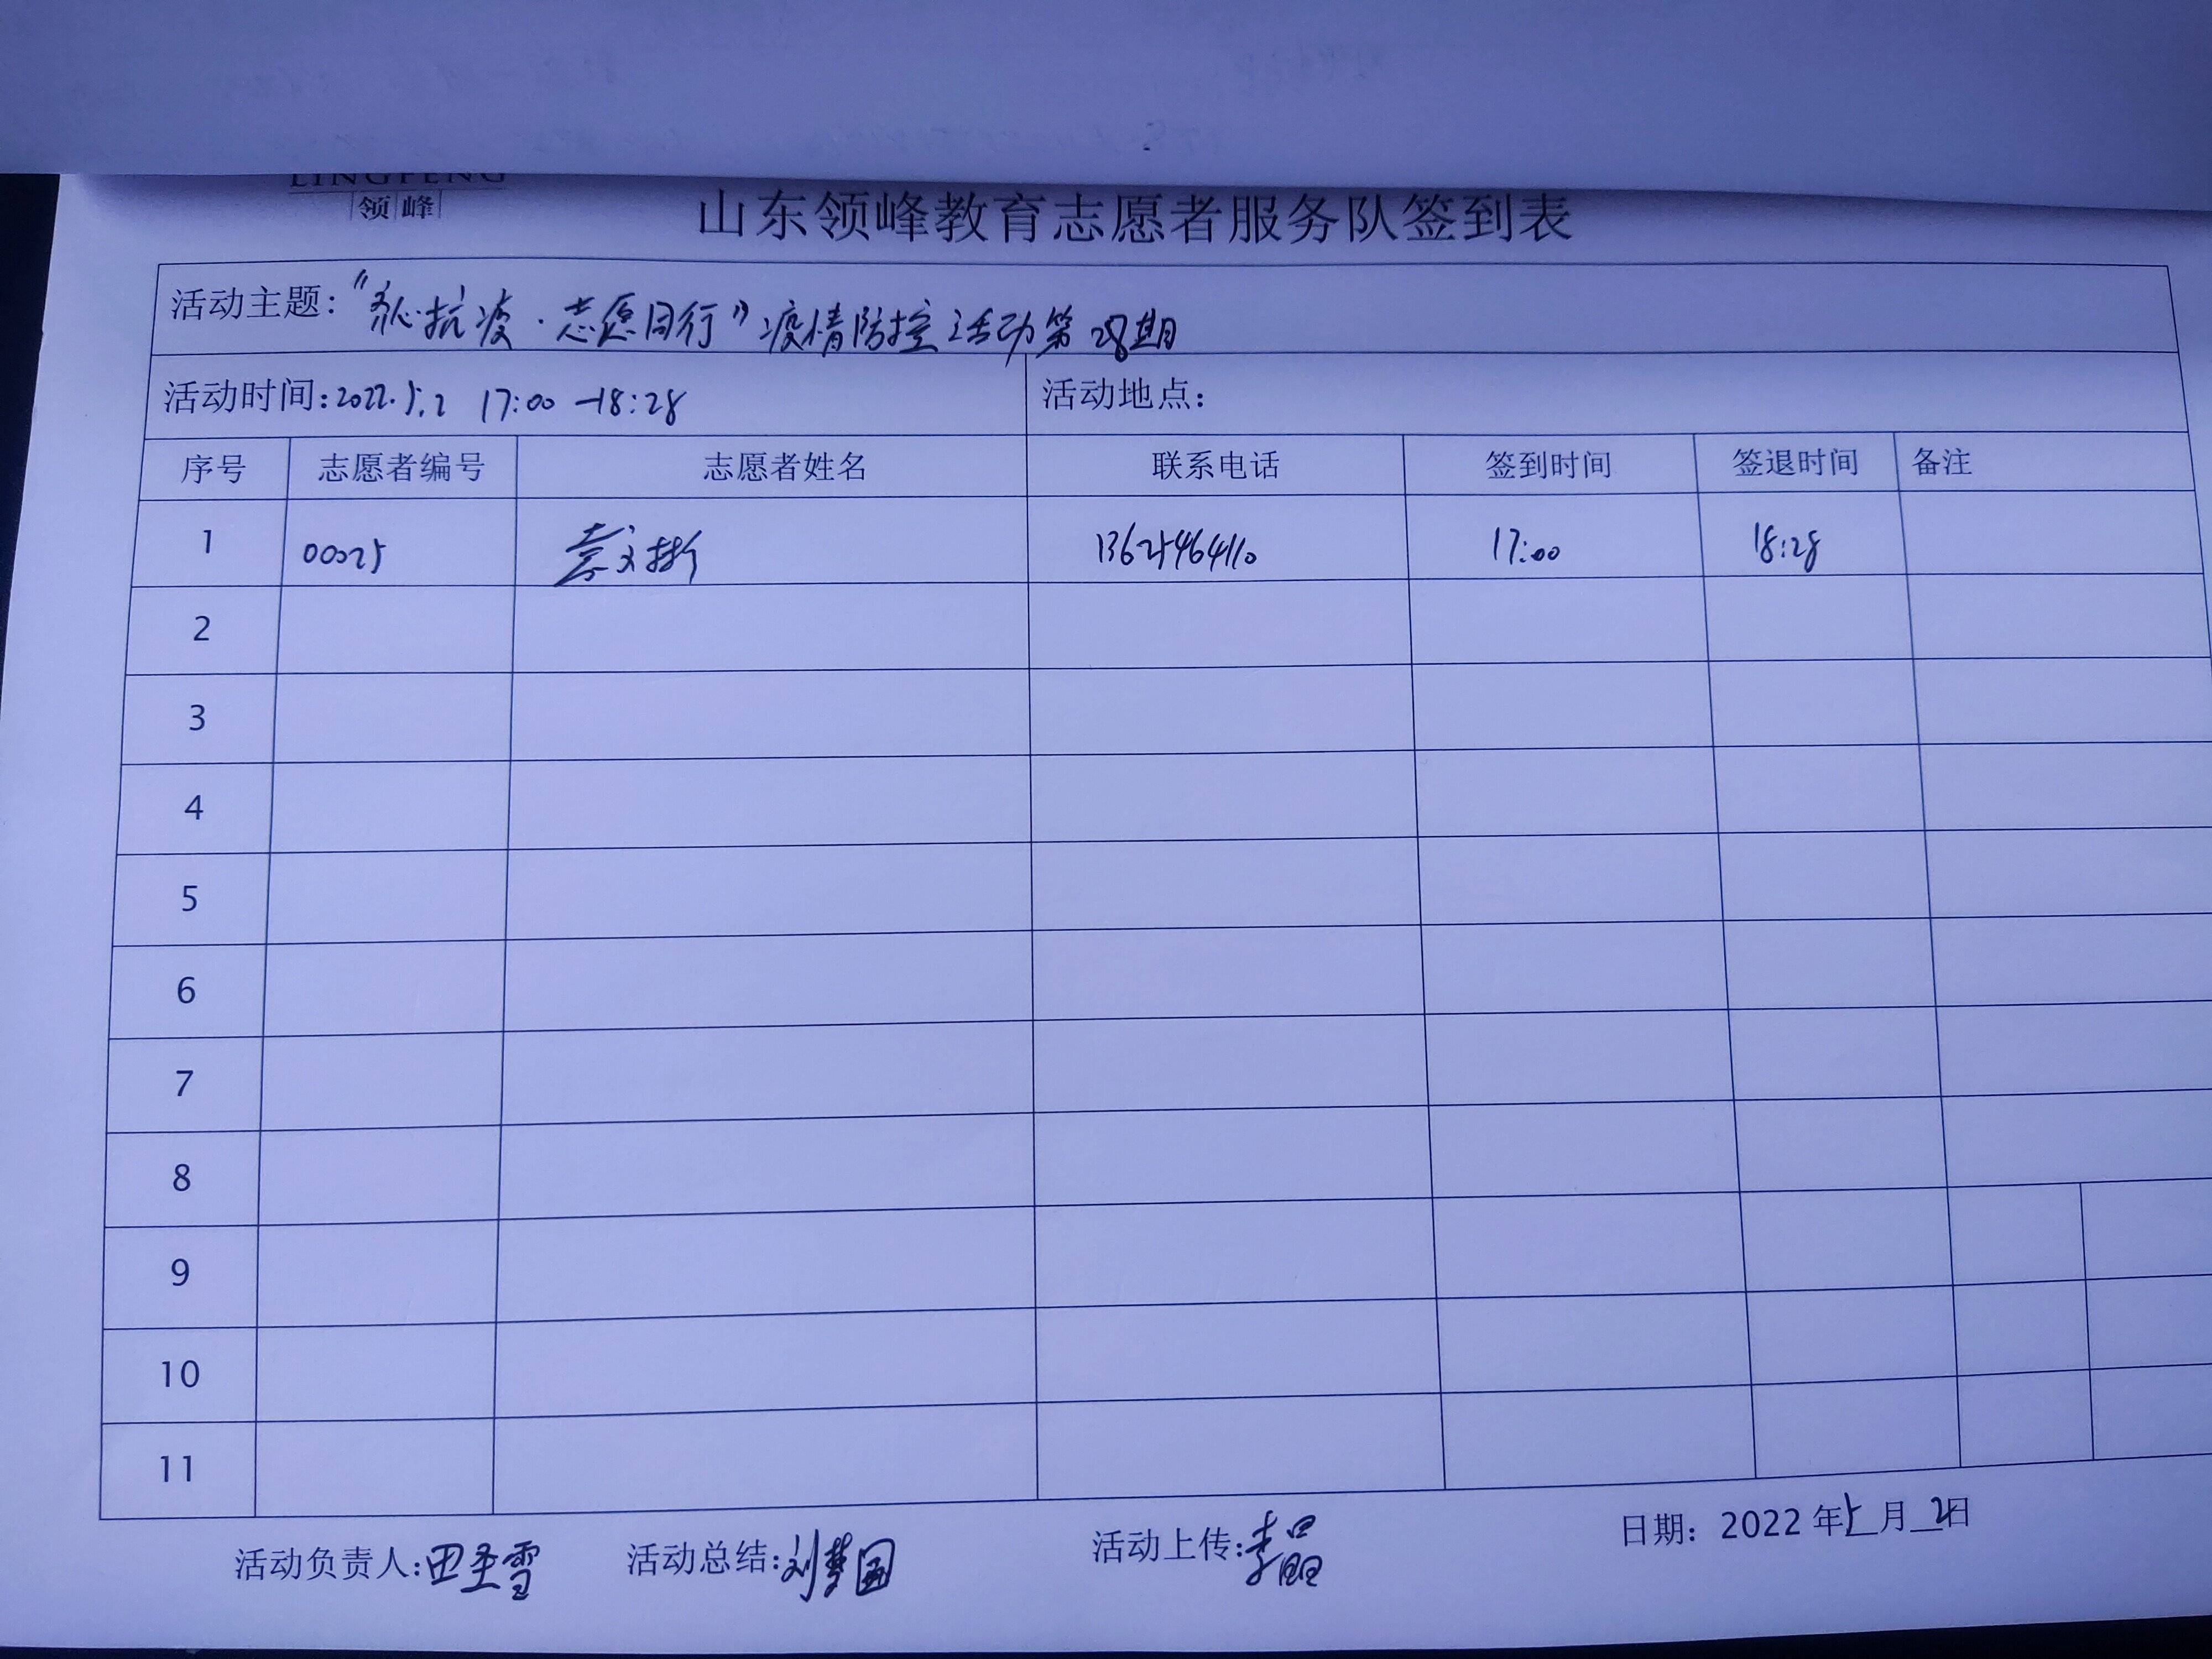 LINGFENG
领峰
山东领峰教育志愿者服务队签到表
活动主题："齐心抗疫·志愿同行"疫情防控活动第28期
活动时间:2022.5.2 17:00-18:28 活动地点：
序号 志愿者编号 志愿者姓名 联系电话 签到时间 签退时间 备注
1 00025 文 13625464110 17:00 18:28
2
3
4
5
6
7
8
9
10
11
活动负责人:田圣雪 活动总结:刘梦圆 活动上传:李晶 日期：2022年5月2日